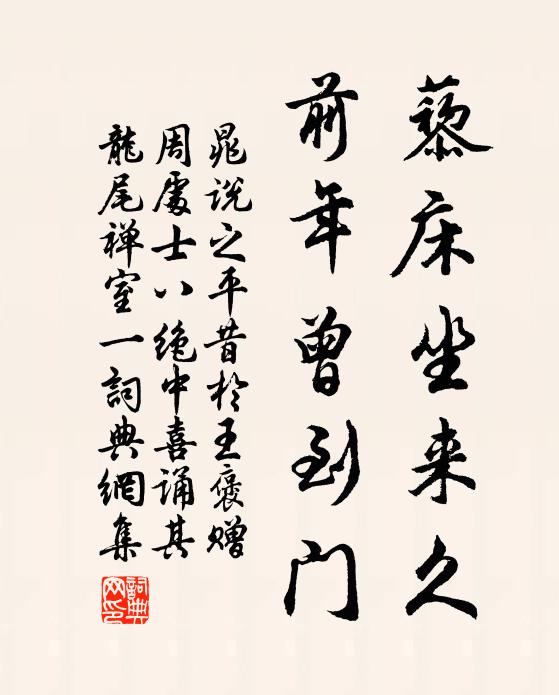 藜床坐来久
前年曾到门
晁说之平昔於王褒赠
周處士八绝中喜诵其
龍尾禅室一詞典網集
詞典
网印